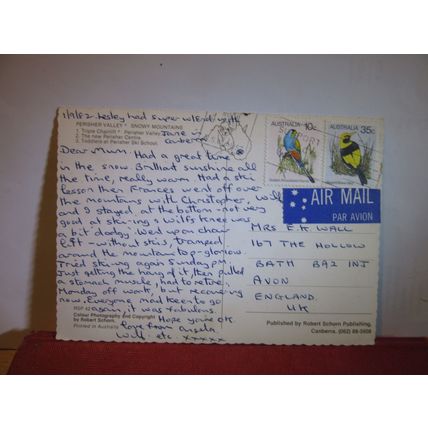 1/9/82. Lesley had super w/end with
PERISHER VALLEY • SNOWY MOUNTAINS
Jane in
1. Triple Chairlift • Perisher Valley
Canberra
2. The new Perisher Centre
3. Toddlers at Perisher Ski School.
Dear Mum, Had a great time
in the snow. Brilliant sunshine all
the time, really warm. Had a ski
lesson then Frances went off over
the mountains with Christopher, Wilf
and I stayed at the bottom - not very
good at skiing & Wilf's knee was
a bit dodgy. Went up on chair
lift - without skis, tramped
around the mountain top - glorious.
Tried skiing again Sunday p.m.
Just getting the hang of it, then pulled
a stomach muscle, had to retire,
Monday off work, but recovering
now. Everyone mad keen to go
again, it was fabulous
Hope you're OK.
Love from Angela
Wilf etc xxxxx
Colour Photography and Copyright
by Robert Schorn.
Printed in Australia
AUSTRALIA
10c
AUSTRALIA
35c
AIR MAIL
PAR AVION
MRS E.K. WALL
167 THE HOLLOW
BATH BA2 1NJ
AVON
ENGLAND.
UK
Published by Robert Schorn Publishing.
Canberra. (062) 88-3408